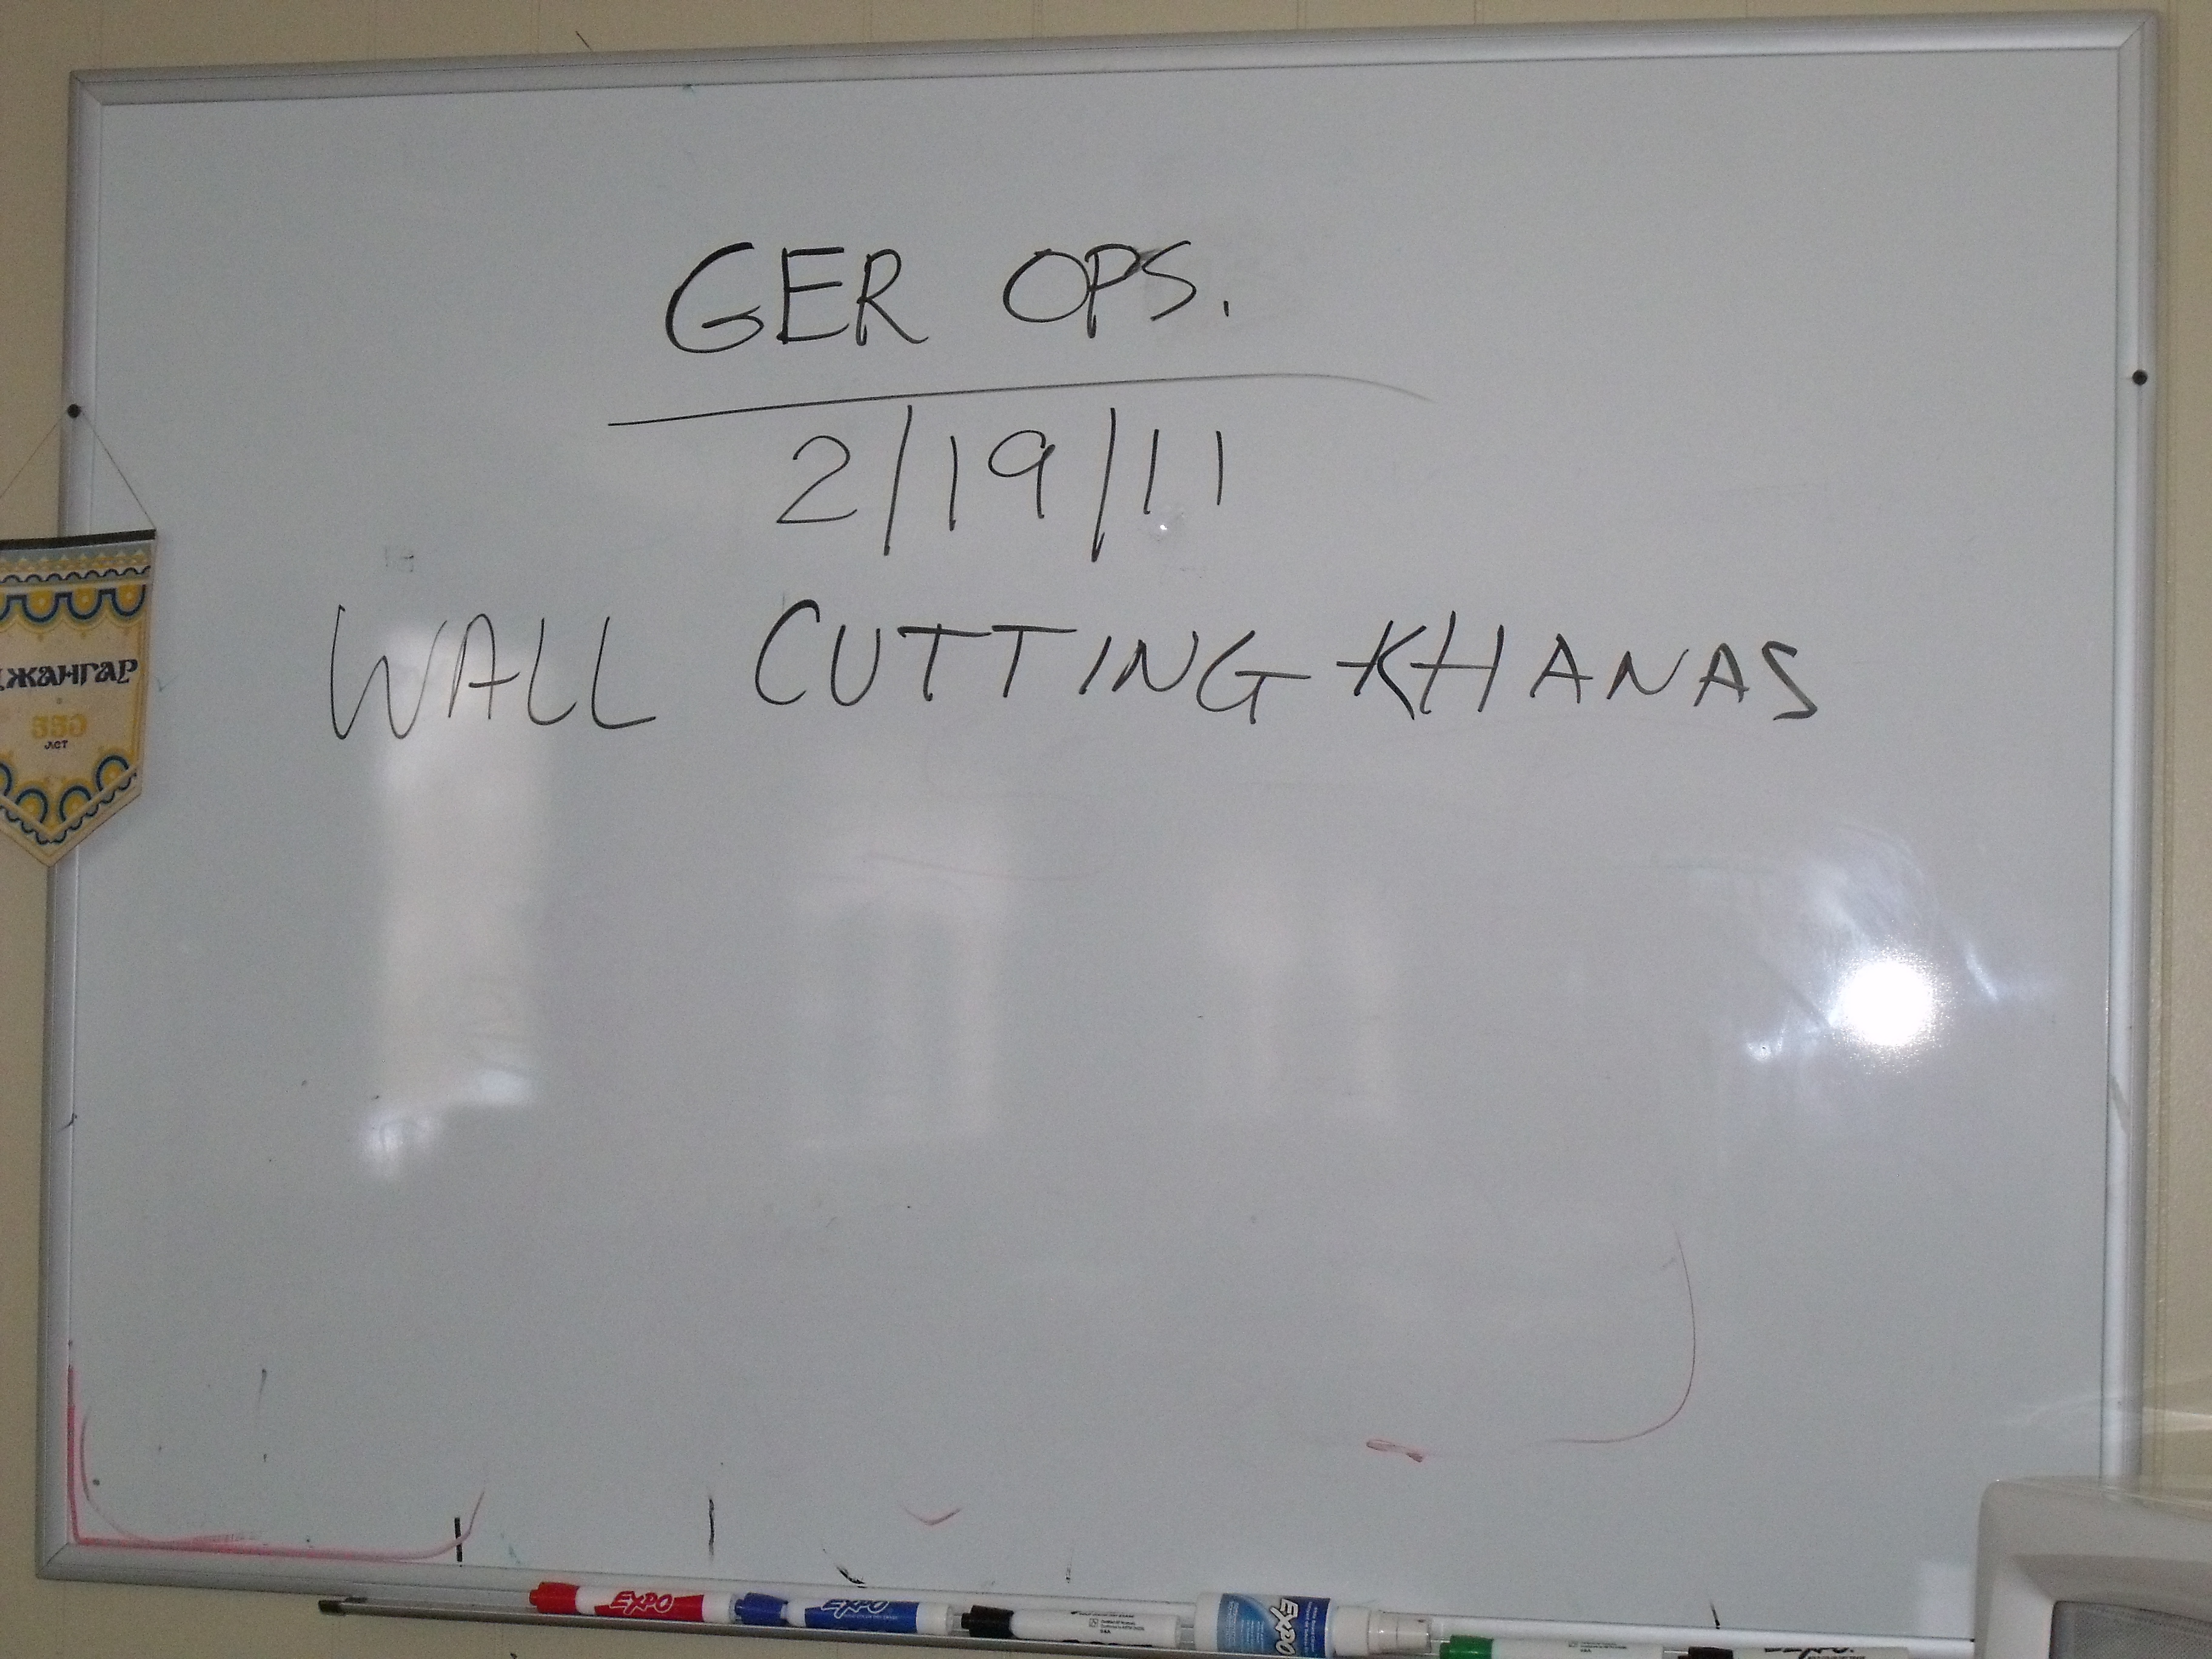 GER OPS.
2/19/11
WALL CUTTING-KHANAS
ДЖАНГАР
550
ЛЕТ
EXPO
EXPO
EXPO
EXPO